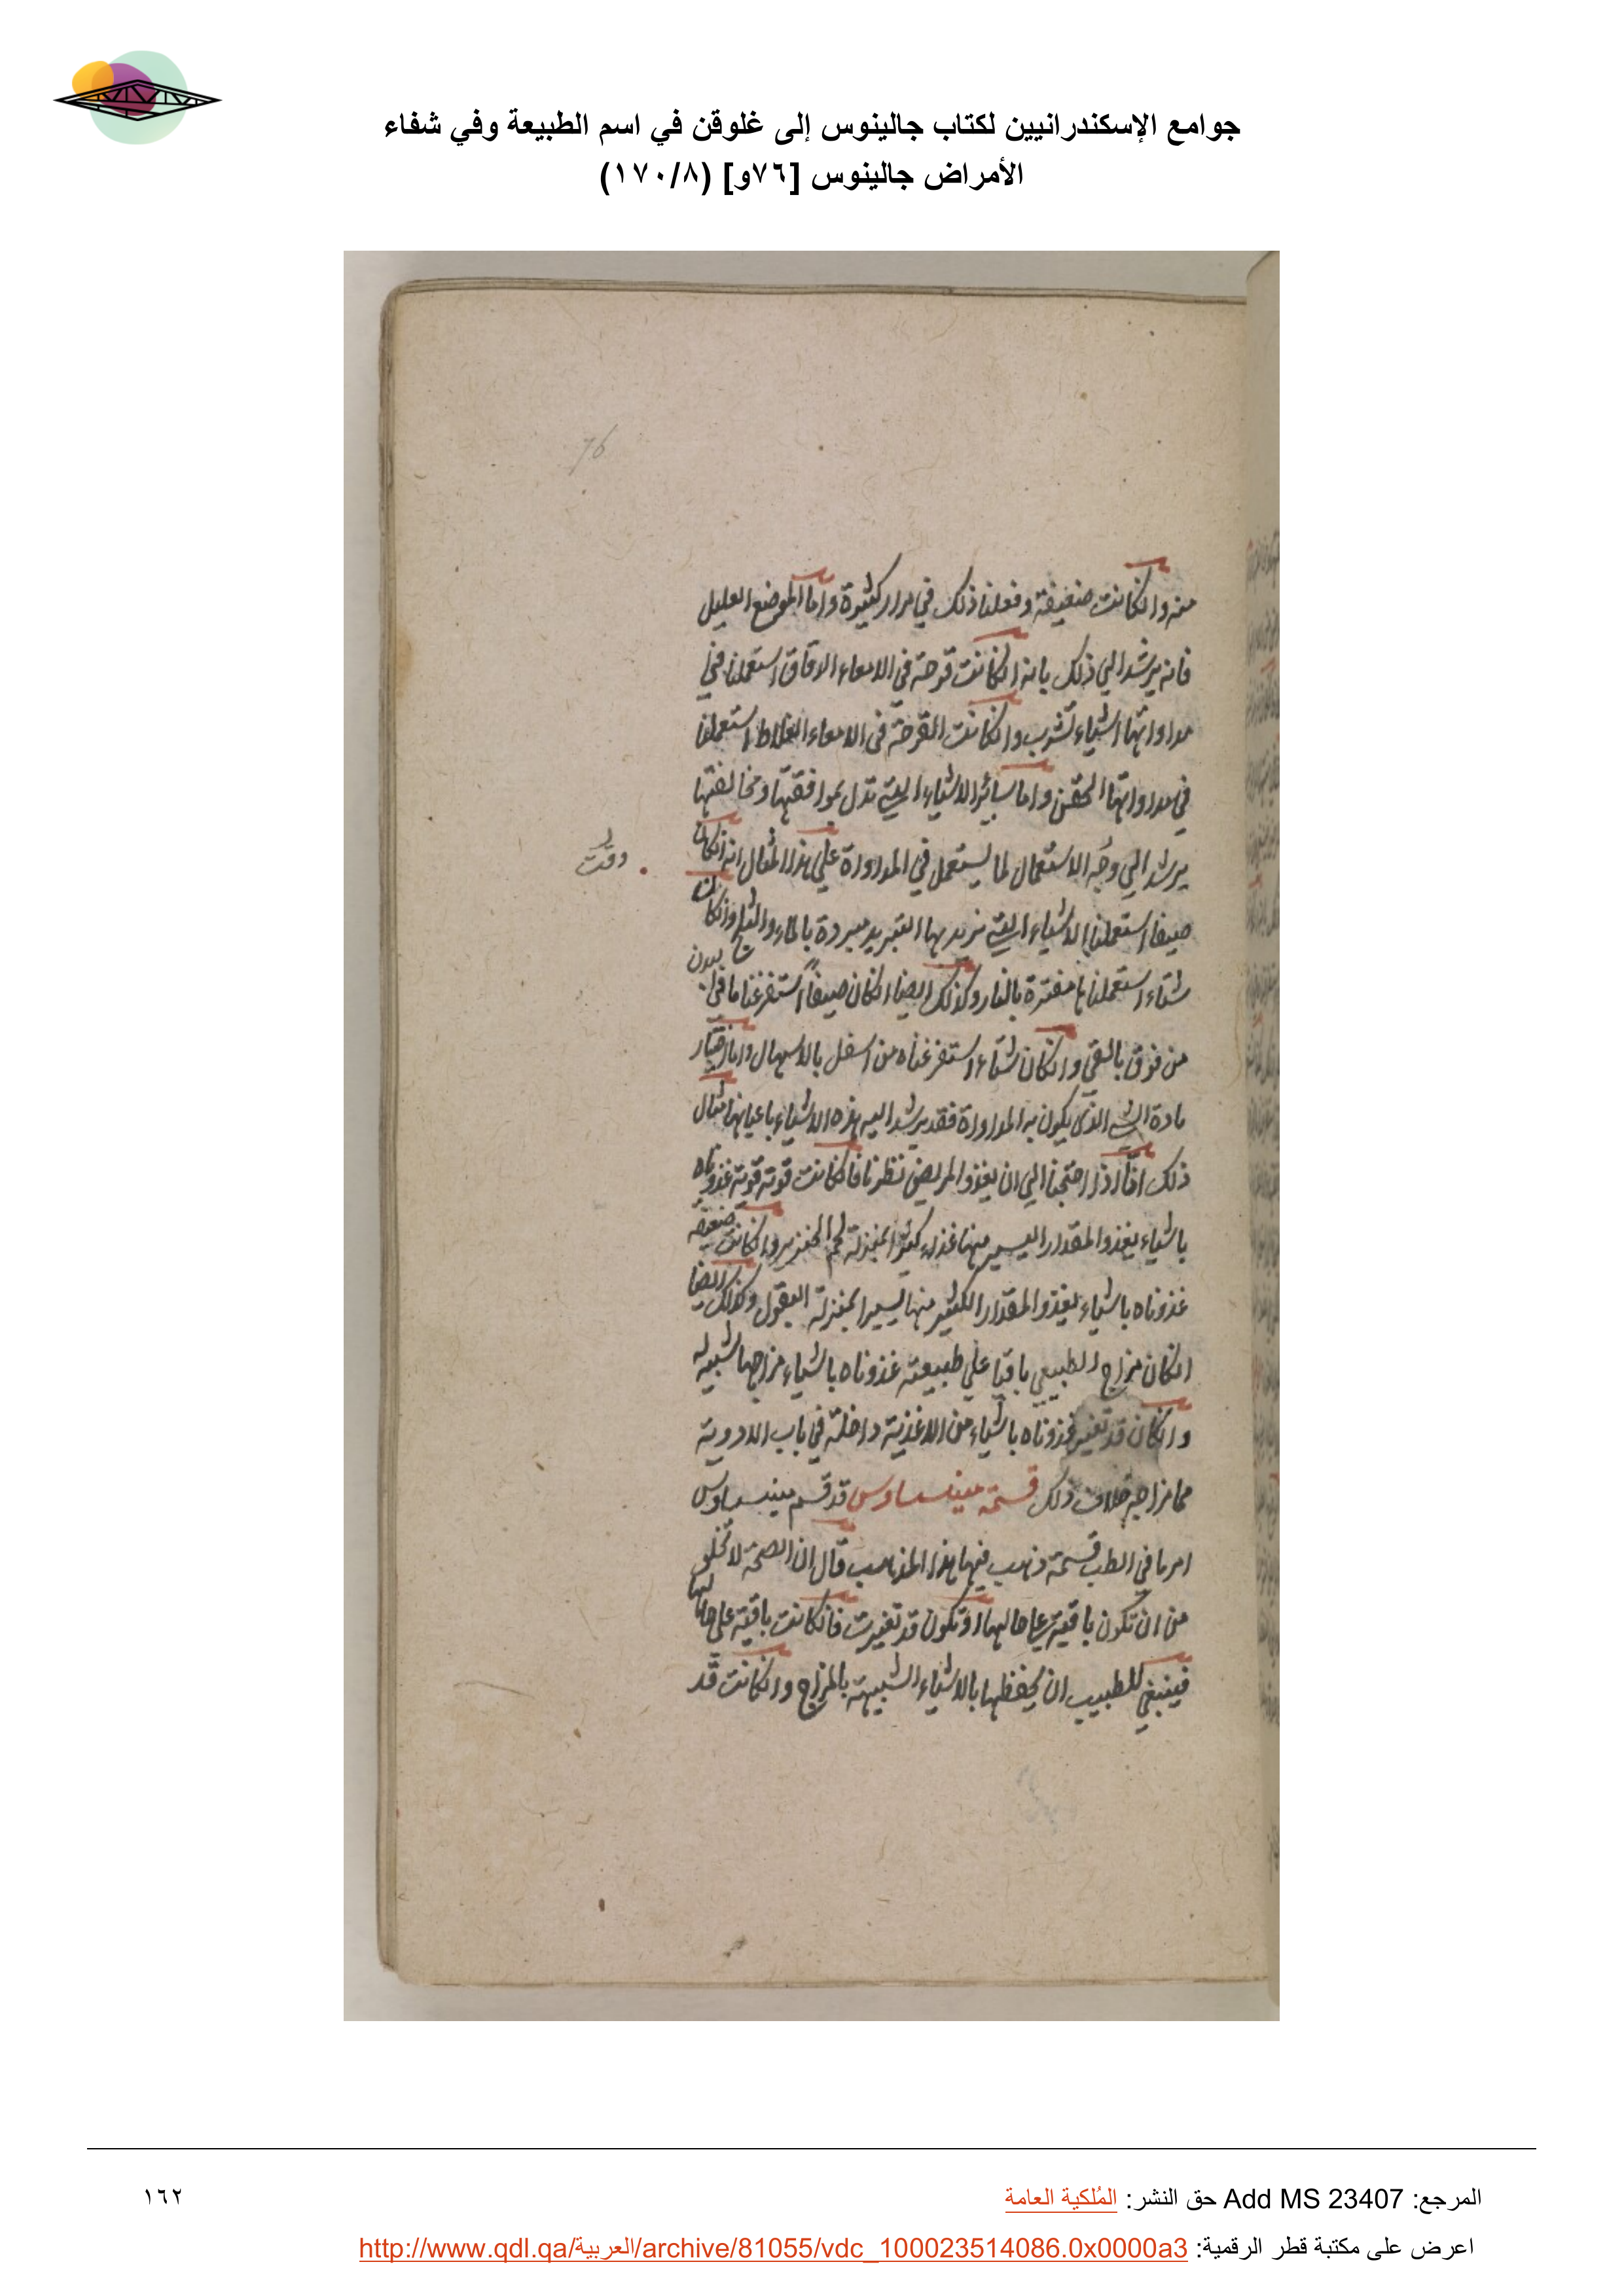 جوامع الإسكندرانيين لكتاب جالينوس إلى غلوقن في اسم الطبيعة وفي شفاء
الأمراض جالينوس [٧٦و] (١٧٠/٨)
76
منه وانكانت ضعيفة وفعلنا ذلك في مرار كثيرة واما الموضع العليل
فانه يرشد الي ذلك بانه انكانت قرحة في الامعاء الدقاق استعملنا في
مداواتها اشياء تشرب وانكانت القرحة في الامعاء الغلاظ استعملنا
في مداواتها الحقن واما سائر الاشياء التي تدل بموافقتها ومخالفتها
يرشد الي وجه الاستعمال لما يستعمل في المداواة علي هذا المثال انه انكان
وقت
صيفا استعملنا الاشياء التي نريد بها التبريد مبردة بالماء والثلج وانكان
شتاء استعملناها مفترة بالنار وكذلك ايضا انكان صيفاً استفرغنا ما في البدن
من فوق بالقي وانكان شتاء استفرغناه من اسفل بالاسهال واما اختيار
مادة الشي الذي يكون به المداواة فقد يرشد اليه هذه الاشياء باعيانها مثال
ذلك انا اذا احتجنا الي ان يغذو المريض نظرنا فانكانت قوته قوية غذوناه
باشياء يغذو المقدار اليسير منها غذاء كثيرا بمنزلة لحم الخنزير وانكانت ضعيفة
غذوناه باشياء يغذو المقدار الكثير منها يسيرا بمنزلة البقول وكذلك ايضا
انكان مزاج الطبيعي باقيا علي طبيعته غذوناه باشياء مزاجها شبيه له
وانكان قد تغير غذوناه باشياء من الاغذية داخلة في باب الادوية
مما مزاجه خلاف ذلك قسمة مينسياوس قد قسم مينسياوس
امر ما في الطب قسمة ذهب فيها هذا المذهب قال ان الصحة لا تخلو
من ان تكون باقية علي حالها او تكون قد تغيرت فانكانت باقية علي حالها
فينبغي للطبيب ان يحفظها بالاشياء الشبيهة بالمزاج وانكانت قد
المرجع: Add MS 23407 حق النشر: المُلكية العامة
١٦٢
اعرض على مكتبة قطر الرقمية: http://www.qdl.qa/العربية/archive/81055/vdc_100023514086.0x0000a3